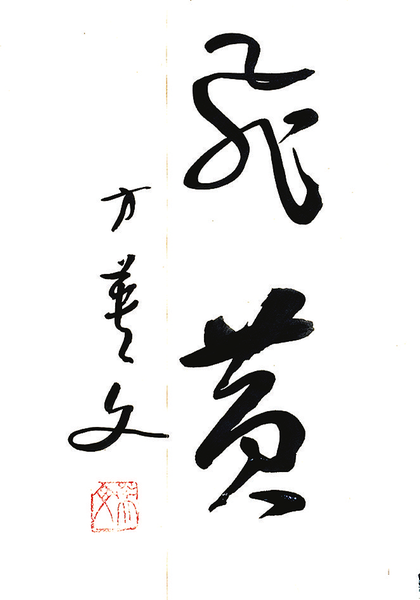 飛黄
方英文